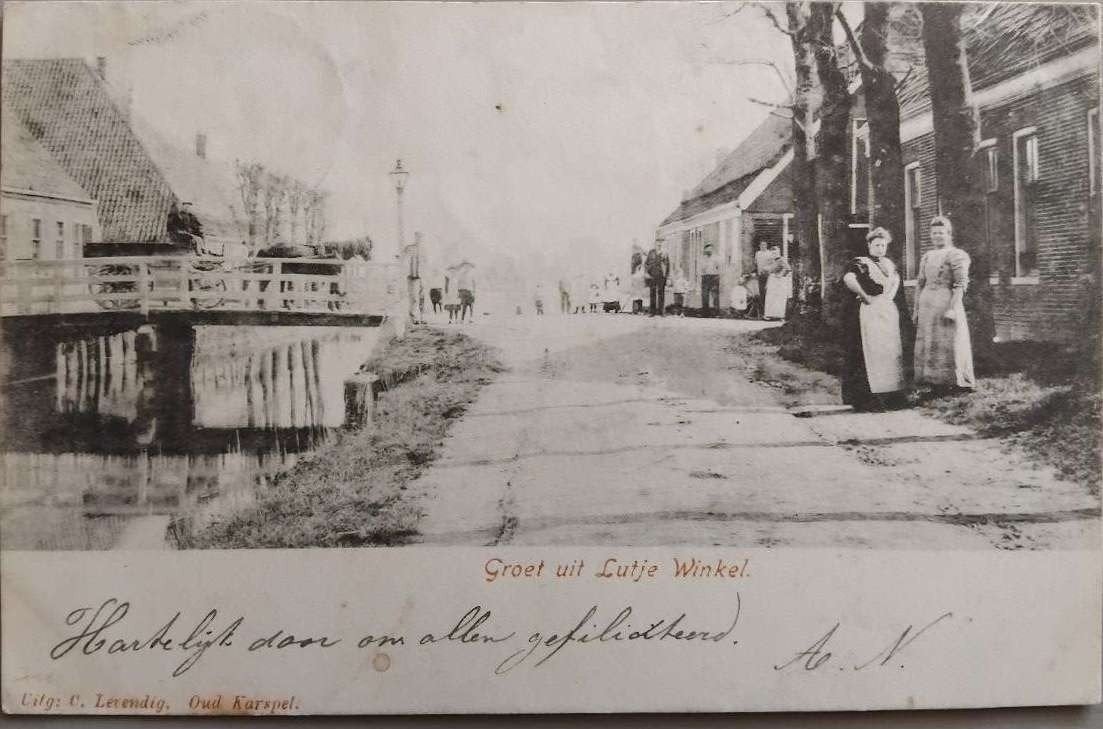 Groet uit Lutje Winkel.
Hartelijk door om allen gefilicteerd.
A. N.
Uitg: C. Levendig, Oud Karspel.